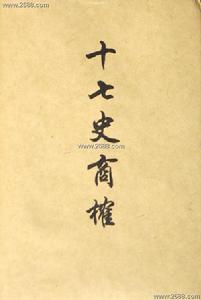 www.2688.com
十七史商榷
www.2688.com
www.2688.com